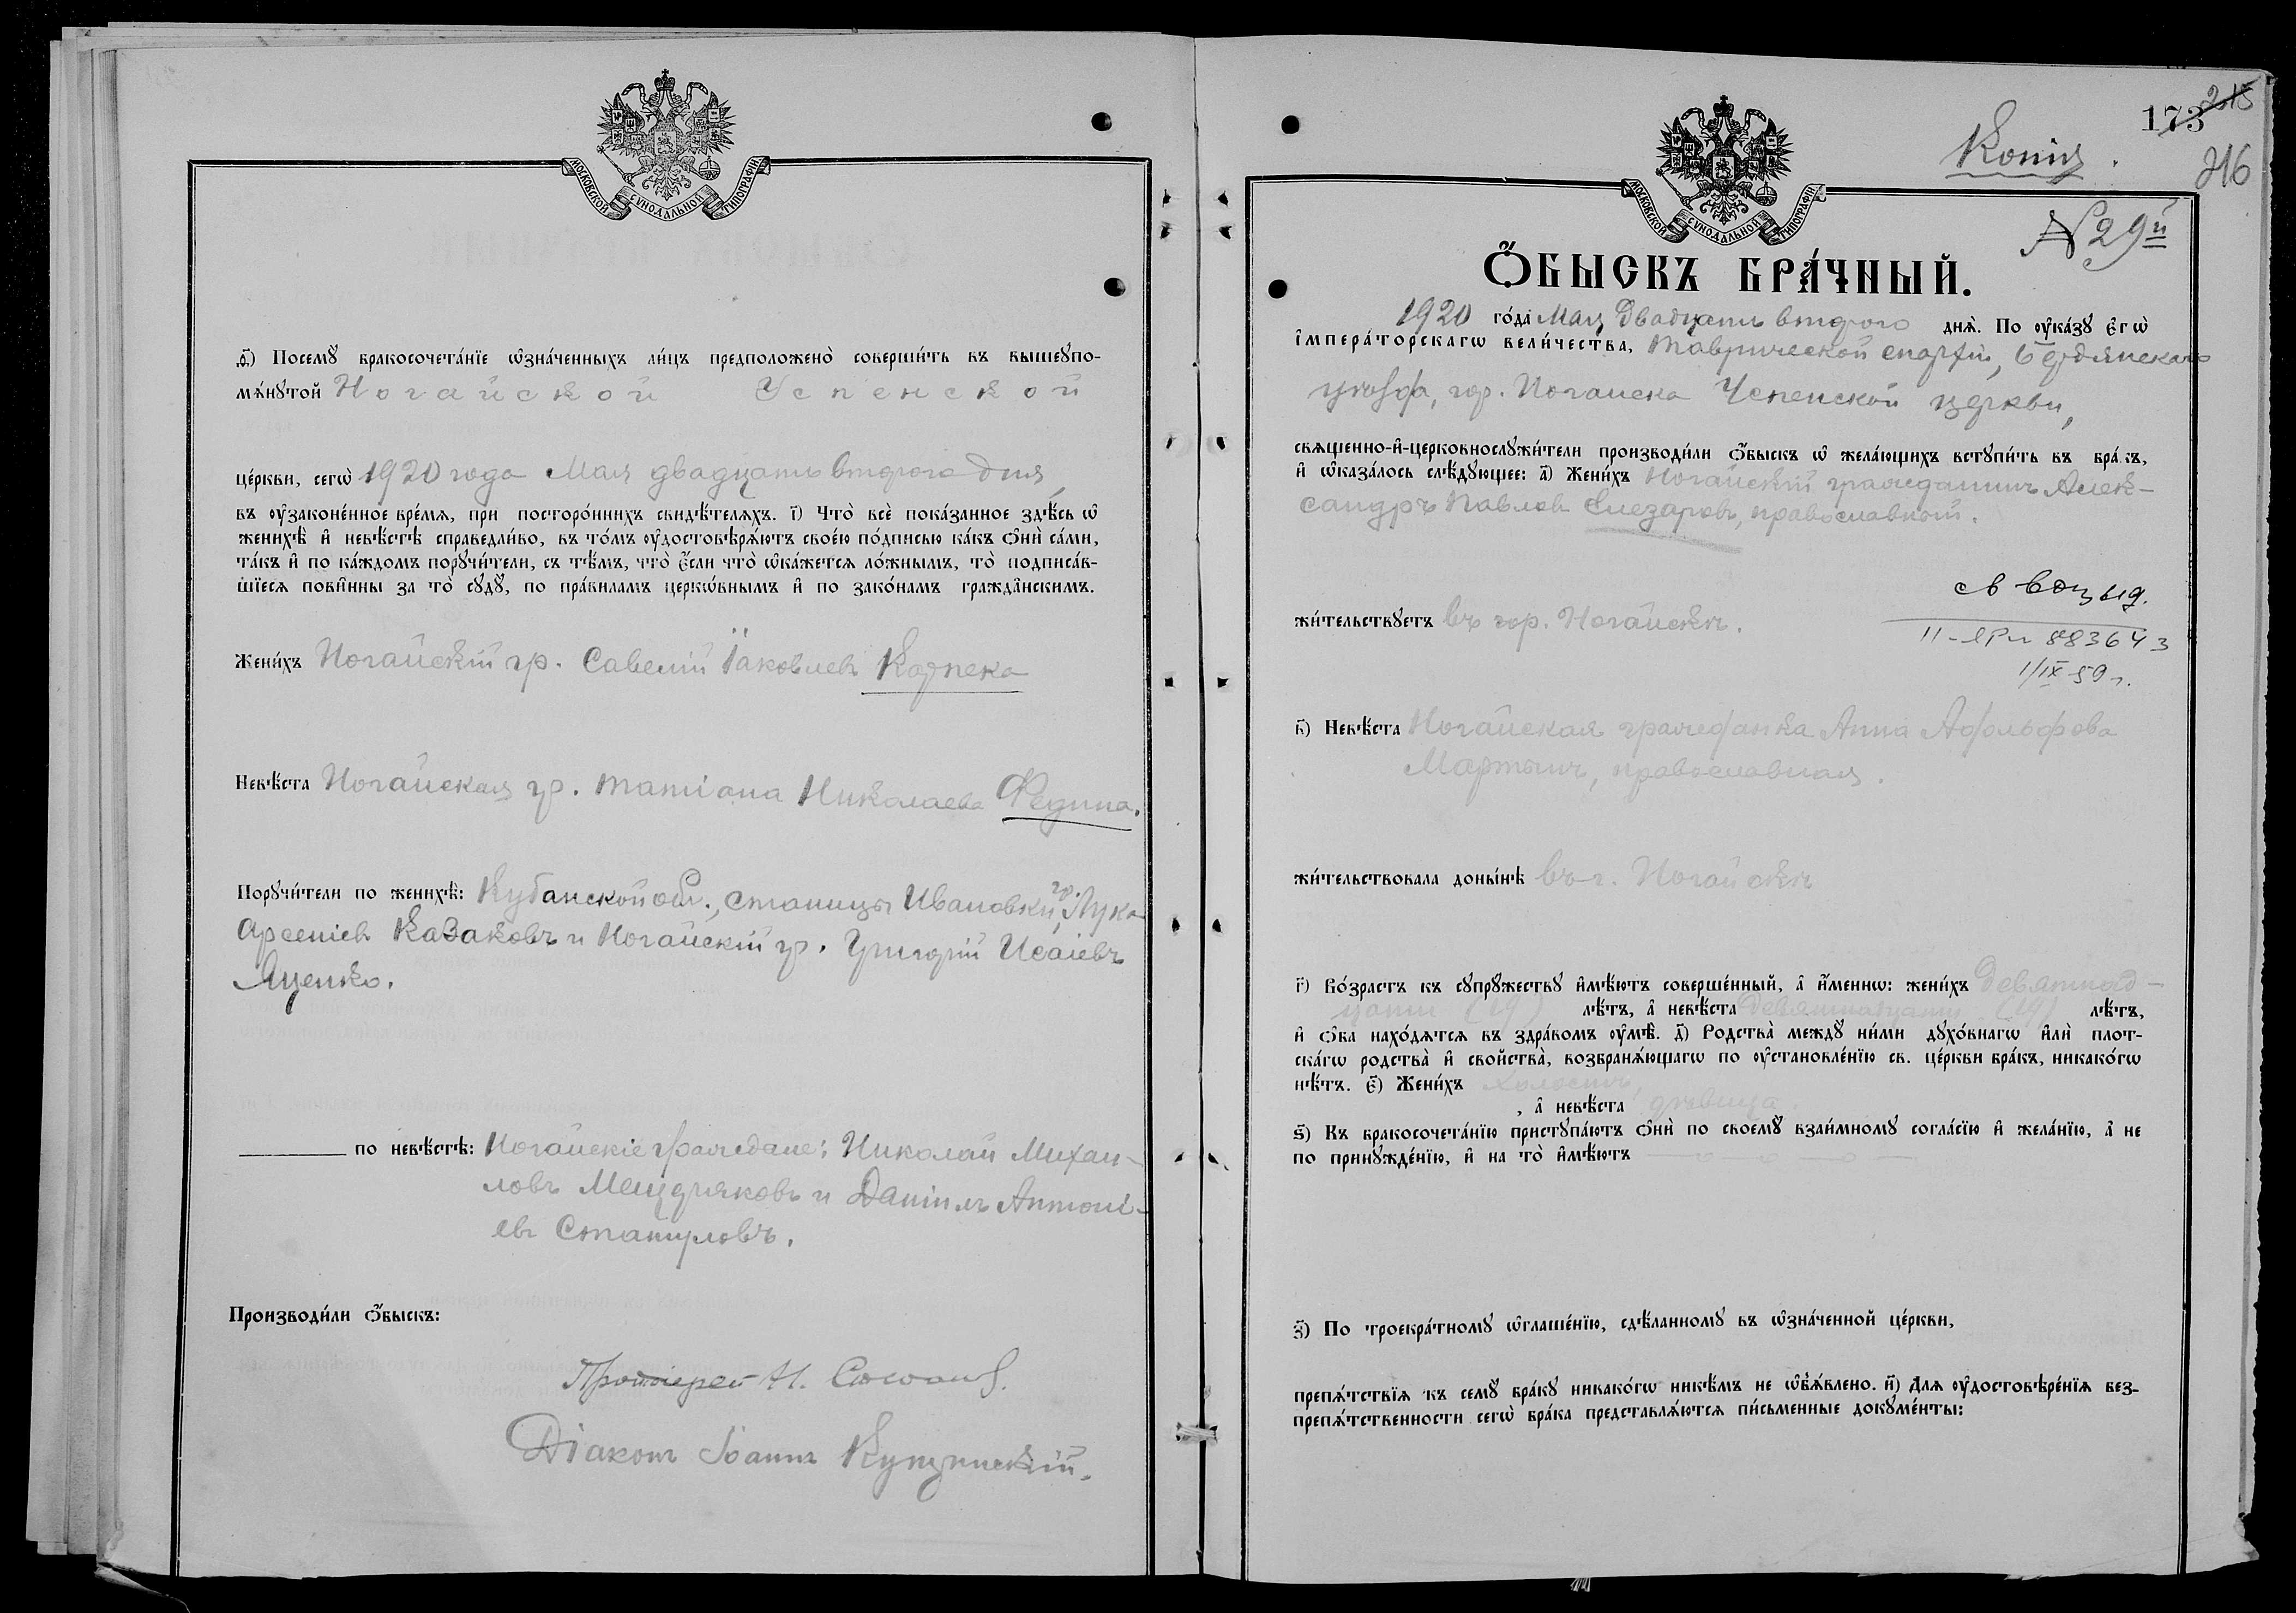 МОСКОВСКОЙ СѴНОДАЛЬНОЙ ТИПОГРАФІИ
д҃) Посемꙋ̀ бракосочета́нїе ѡ҆зна́ченныхъ ли́цъ предположено̀ соверши́ть въ вышеꙋпо-
мѧ́нꙋтой Ногайской Успенской
це́ркви, сегѡ̀ 1920 года Мая двадцать второго дня,
въ ᲂу҆законе́нное вре́мѧ, при посторо́ннихъ свидѣ́телѧхъ. і҃) Что̀ всѐ пока́занное здѣ́сь ѡ҆
женихѣ̀ и҆ невѣ́стѣ справедли́во, въ то́мъ ᲂу҆достовѣрѧ́ютъ свое́ю по́дписью ка́къ ѻ҆нѝ са́ми,
та́къ и҆ по ка́ждомъ порꙋчи́тели, съ тѣ́мъ, что̀ є҆́сли что̀ ѡ҆ка́жетсѧ ло́жнымъ, то̀ подписа́в-
шїесѧ пови́нны за то̀ сꙋдꙋ̀, по пра́виламъ церко́внымъ и҆ по зако́намъ гражда́нскимъ.
Жени́хъ Ногайскій гр. Савелій Іаковлевъ Карпека
Невѣ́ста Ногайская гр. Татіана Николаева Федина.
Порꙋчи́тели по женихѣ̀: Кубанской обл., станицы Ивановки, гр. Лука
Арсеніевъ Казаковъ и Ногайскій гр. Григорій Исаіевъ
Яценко.
по невѣ́стѣ: Ногайскіе граждане: Николай Михаи-
ловъ Мещеряковъ и Даніилъ Антоні-
евъ
Производи́ли ѻ҆́быскъ:
Протоіерей Н.
Діаконъ Іоаннъ
МОСКОВСКОЙ СѴНОДАЛЬНОЙ ТИПОГРАФІИ
Копія.
173 215
216
N 29й
Ѻ҆́БЫСКЪ БРА́ЧНЫЙ.
1920 го́да Мая двадцать второго днѧ̀. По ᲂу҆ка́зꙋ є҆гѡ̀
і҆мпера́торскагѡ вели́чества, Таврической епархіи, Бердянскаго
уѣзда, гор. Ногайска Успенской церкви,
свѧще́нно-и҆-церковнослꙋжи́тели производи́ли ѻ҆́быскъ ѡ҆ жела́ющихъ встꙋпи́ть въ бра́къ,
и҆ ѡ҆каза́лось слѣ́дꙋющее: а҃) Жени́хъ Ногайскій гражданинъ Алек-
сандръ Павловъ Слезаровъ, православный.
жи́тельствꙋетъ въ гор. Ногайскѣ.
883643
1/IX 59 г.
в҃) Невѣ́ста Ногайская гражданка Анна Адольфова
Мартынъ, православная.
жи́тельствовала доны́нѣ въ г. Ногайскѣ
г҃) Во́зрастъ къ сꙋпрꙋ́жествꙋ и҆мѣ́ютъ соверше́нный, а҆ и҆́менно: жени́хъ девятнад-
цати (19) лѣ́тъ, а҆ невѣ́ста девятнадцати (19) лѣ́тъ,
и҆ ѻ҆́ба нахо́дѧтсѧ въ здра́вомъ ᲂу҆мѣ̀. д҃) Родства̀ междꙋ̀ ни́ми дꙋхо́внагѡ и҆лѝ плот-
ска́гѡ родства̀ и҆ свойства̀, возбранѧ́ющагѡ по ᲂу҆становле́нїю св. це́ркви бра́къ, никако́гѡ
нѣ́тъ. є҃) Жени́хъ холостъ,
, а҆ невѣ́ста дѣвица.
ѕ҃) Къ бракосочета́нїю пристꙋпа́ютъ ѻ҆нѝ по своемꙋ̀ взаи́мномꙋ согла́сїю и҆ жела́нїю, а҆ не
по принꙋжде́нїю, и҆ на то̀ и҆мѣ́ютъ
з҃) По троекра́тномꙋ ѡ҆глаше́нїю, сдѣ́ланномꙋ въ ѡ҆зна́ченной це́ркви,
препѧ́тствїѧ къ семꙋ̀ бра́кꙋ никако́гѡ никѣ́мъ не ѡ҆б̾ѧ́влено. и҃) Длѧ ᲂу҆достовѣре́нїѧ без-
препѧ́тственности сегѡ̀ бра́ка представлѧ́ютсѧ пи́сьменные докꙋме́нты: